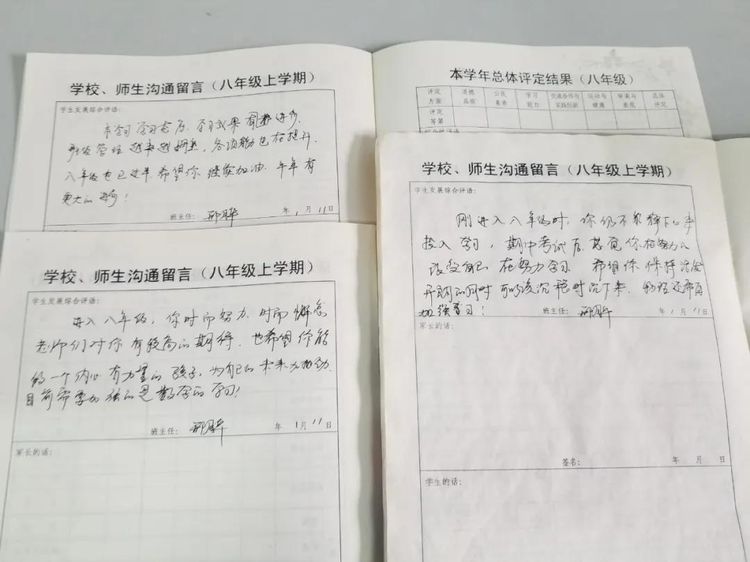 学校、师生沟通留言（八年级上学期）
学生发展综合评语：
本学期 学习态度 学习效果 有进步
班级管理 越来越娴熟，各项能力也在提升
八年级也已过半 希望你 继续加油 年年有
更大的进步！
班主任：
年 1月 11日
本学年总体评定结果（八年级）
评定 道德 公民 学习 交流合作与 运动与 审美与 总体
方面 品质 素养 能力 实践创新 健康 表现 评定
等第
学校、师生沟通留言（八年级上学期）
学生发展综合评语：
进入八年级，你时而努力 时而懈怠
老师们对你有较高的期待，也希望你能
做一个内心有力量的孩子，为自己的未来
目前需要加强的是数学的学习！
班主任：
年 1月 11日
家长的话：
学校、师生沟通留言（八年级上学期）
学生发展综合评语：
刚进入八年级时，你
投入学习，期中考试后 你在努力
改变自己 在努力学习 希望你保持
开朗的同时 沉下来
加强学习！
班主任：
年 1月 11日
家长的话：
签名： 年 月 日
学生的话：